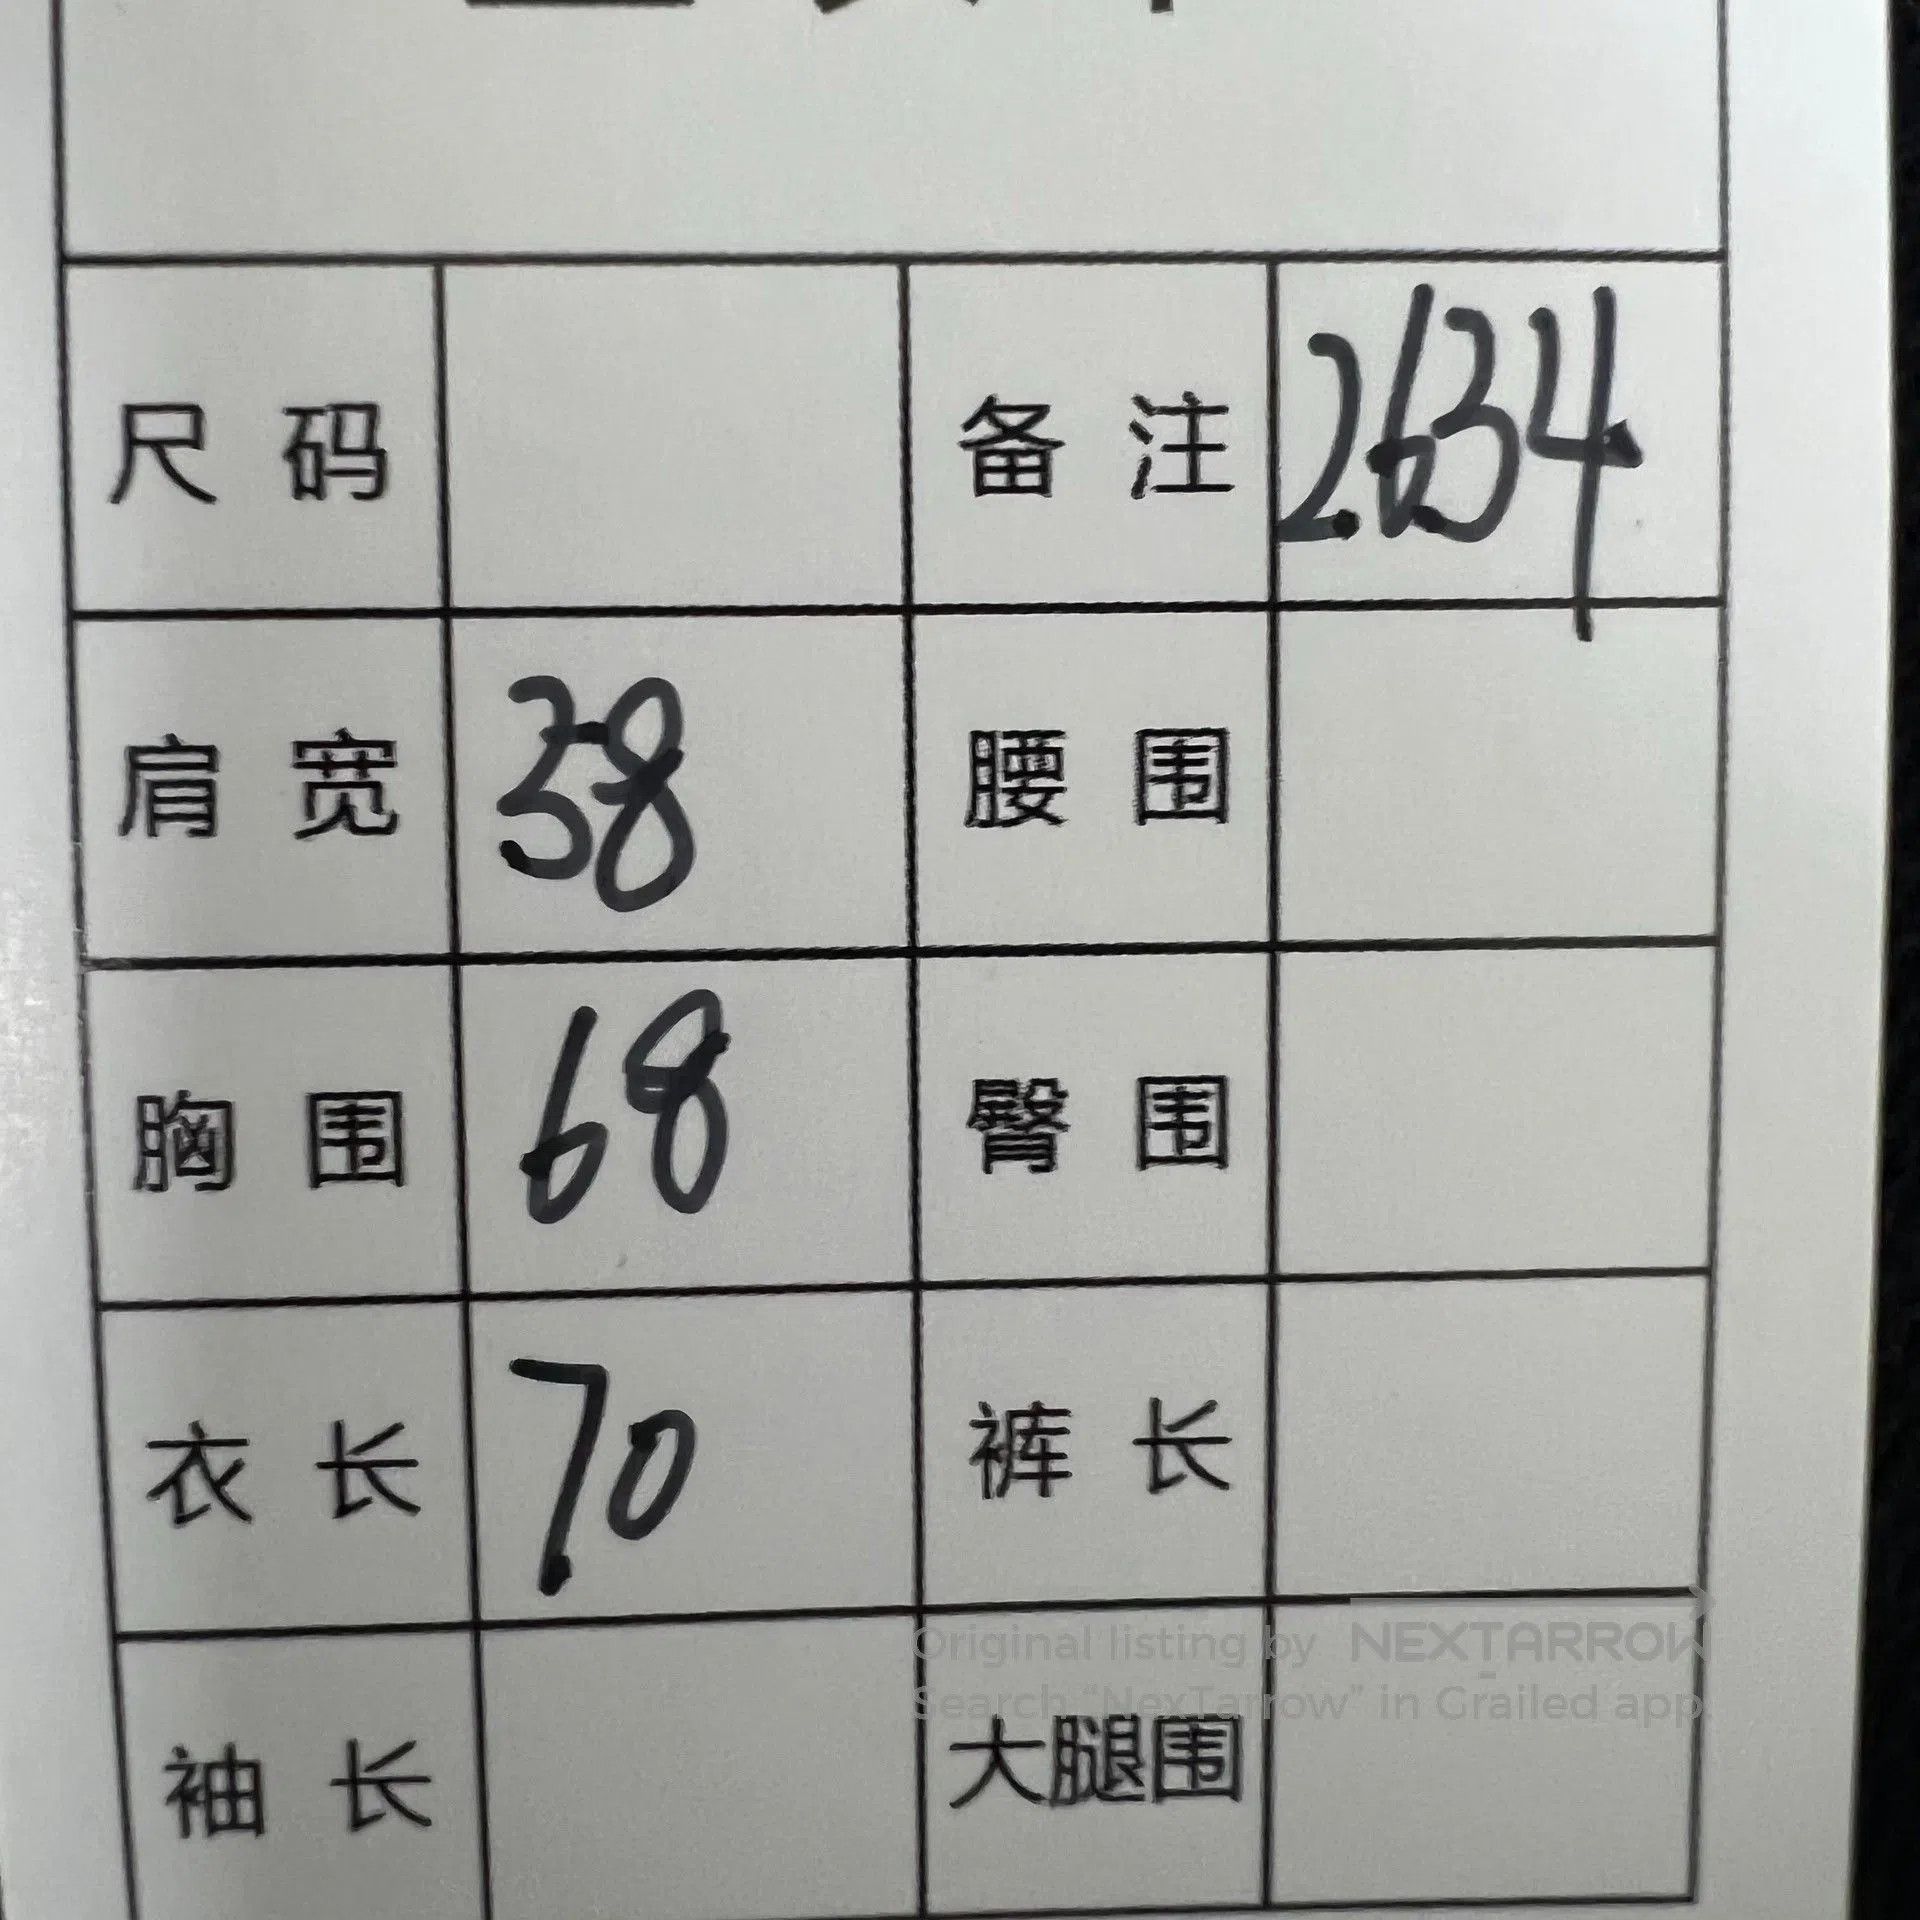 尺码 备注 2634
肩宽 38 腰围
胸围 68 臀围
衣长 70 裤长
Original listing by NEXTARROW
Search “NexTarrow” in Grailed app.
袖长 大腿围